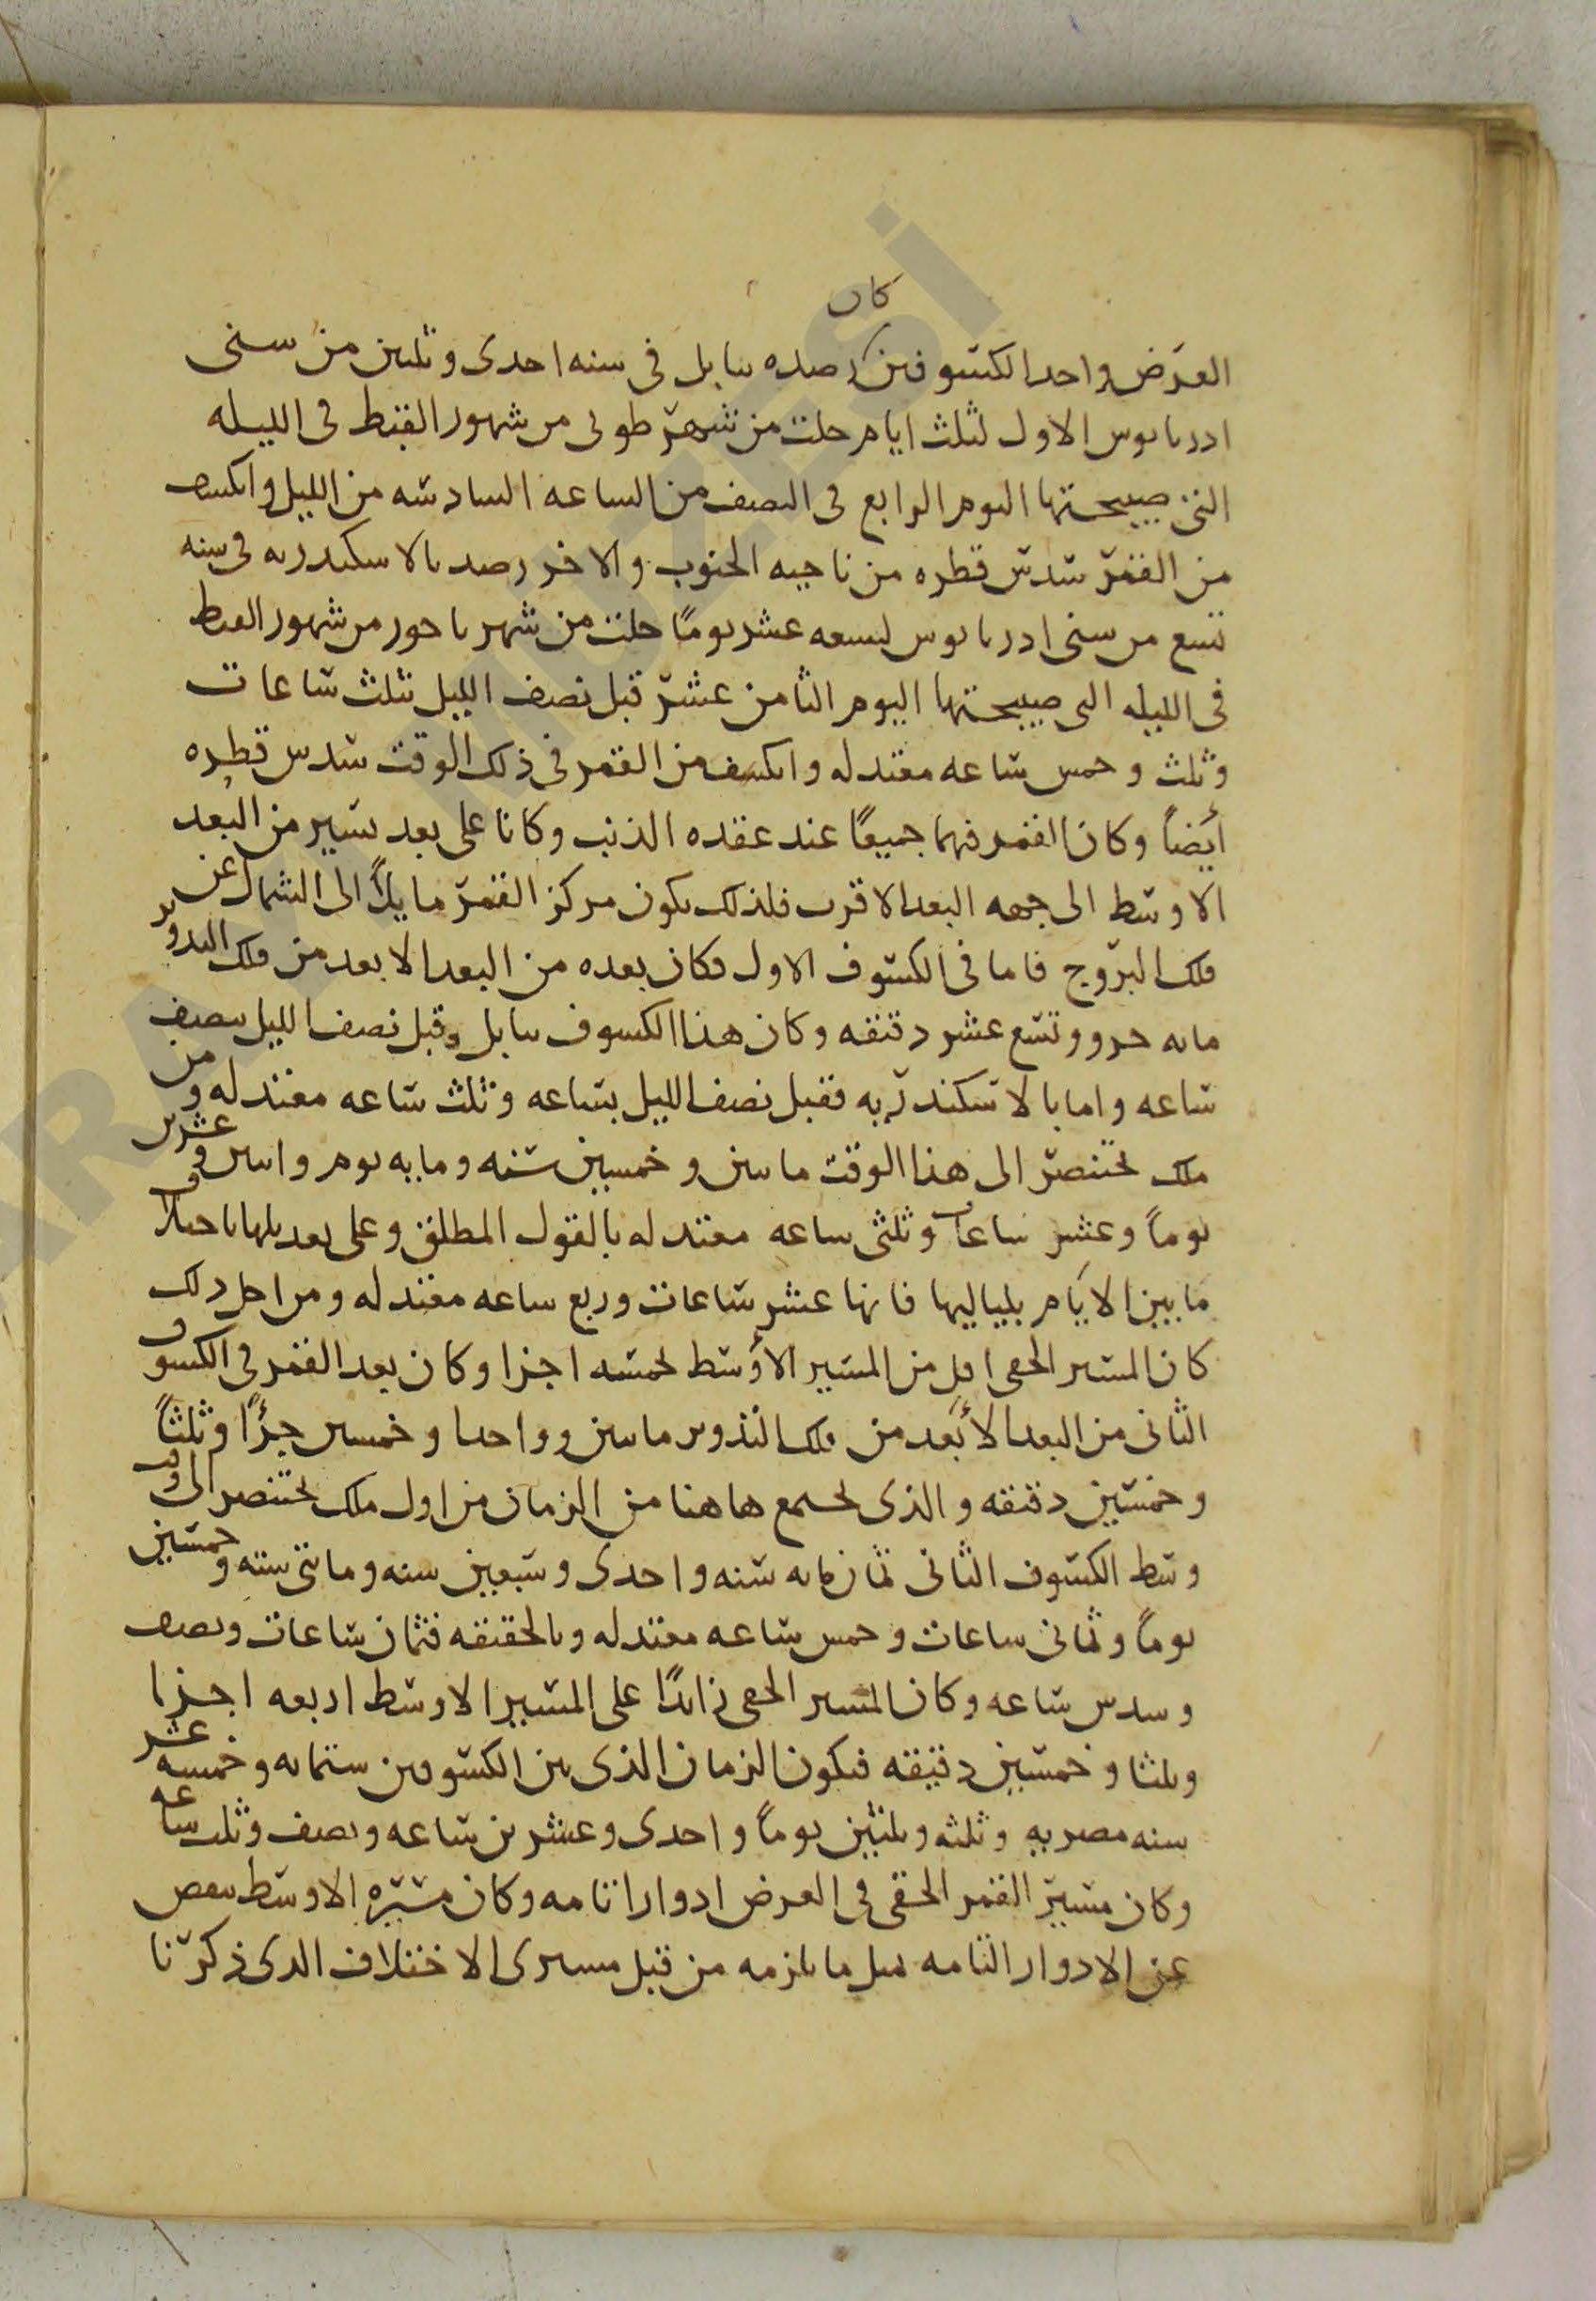 كان
العرض واحد الكسوفين رصده ببابل في سنه احدى وثلثين من سنى
ادريانوس الاول لثلث ايام خلت من شهر طوبى من شهور القبط في الليله
التى صبيحتها اليوم الرابع في النصف من الساعه السادسه من الليل وانكسف
من القمر سدس قطره من ناحيه الجنوب والاخر رصد بالاسكندريه في سنه
تسع من سنى ادريانوس لسبعه عشر يوما خلت من شهر باخور من شهور القبط
في الليله التى صبيحتها اليوم الثامن عشر قبل نصف الليل بثلث ساعات
وثلث وخمس ساعه معتدله وانكسف من القمر في ذلك الوقت سدس قطره
أيضاً وكان القمر فيهما جميعاً عند عقده الذنب وكانا على بعد يسير من البُعد
الاوسط الى جهه البعد الاقرب فلذلك يكون مركز القمر مايلاً الى الشمال عن
فلك البروج فاما في الكسوف الاول فكان بعده من البعد الابعد من فلك التدوير
مايه جزو وتسع عشر دقيقه وكان هذا الكسوف ببابل وقبل نصف الليل بنصف
ساعه واما بالاسكندريه فقبل نصف الليل بساعه وثلث ساعه معتدله ومن
ملك بختنصر الى هذا الوقت مايتين وخمسين سنه ومايه يوم واثنين وعشرين
يوماً وعشر ساعات وثلثى ساعه معتدله بالقول المطلق وعلى بعد يلها باختلاف
ما بين الايام بلياليها فانها عشر ساعات وربع ساعه معتدله ومن اجل ذلك
كان المسير الحقى اقل من المسير الأوسط بخمسه اجزا وكان بعد القمر في الكسوف
الثانى من البعد الأبعد من فلك التدوير مايتين وواحدا وخمسين جزؤاً وثلثاً
وخمسين دقيقه والذى يجتمع هاهنا من الزمان من اول ملك بختنصر الى وقت
وسط الكسوف الثانى ثمان مايه سنه واحدى وسبعين سنه ومائتى سته وخمسين
يوماً وثمانى ساعات وخمس ساعه معتدله وبالحقيقه فثمان ساعات ونصف
وسدس ساعه وكان المسير الحقى زائداً على المسير الاوسط اربعه اجزا
وثلثا وخمسين دقيقه فيكون الزمان الذى بين الكسوفين ستمايه وخمسه عشر
سنه مصريه وثلثه وثلثين يوماً واحدى وعشرين ساعه ونصف وثلث ساعه
وكان مسير القمر الحقى في العرض ادوارا تامه وكان مسيره الاوسط ينقص
عن الادوار التامه مثل ما يلزمه من قبل مسيرى الاختلاف الذى ذكرنا